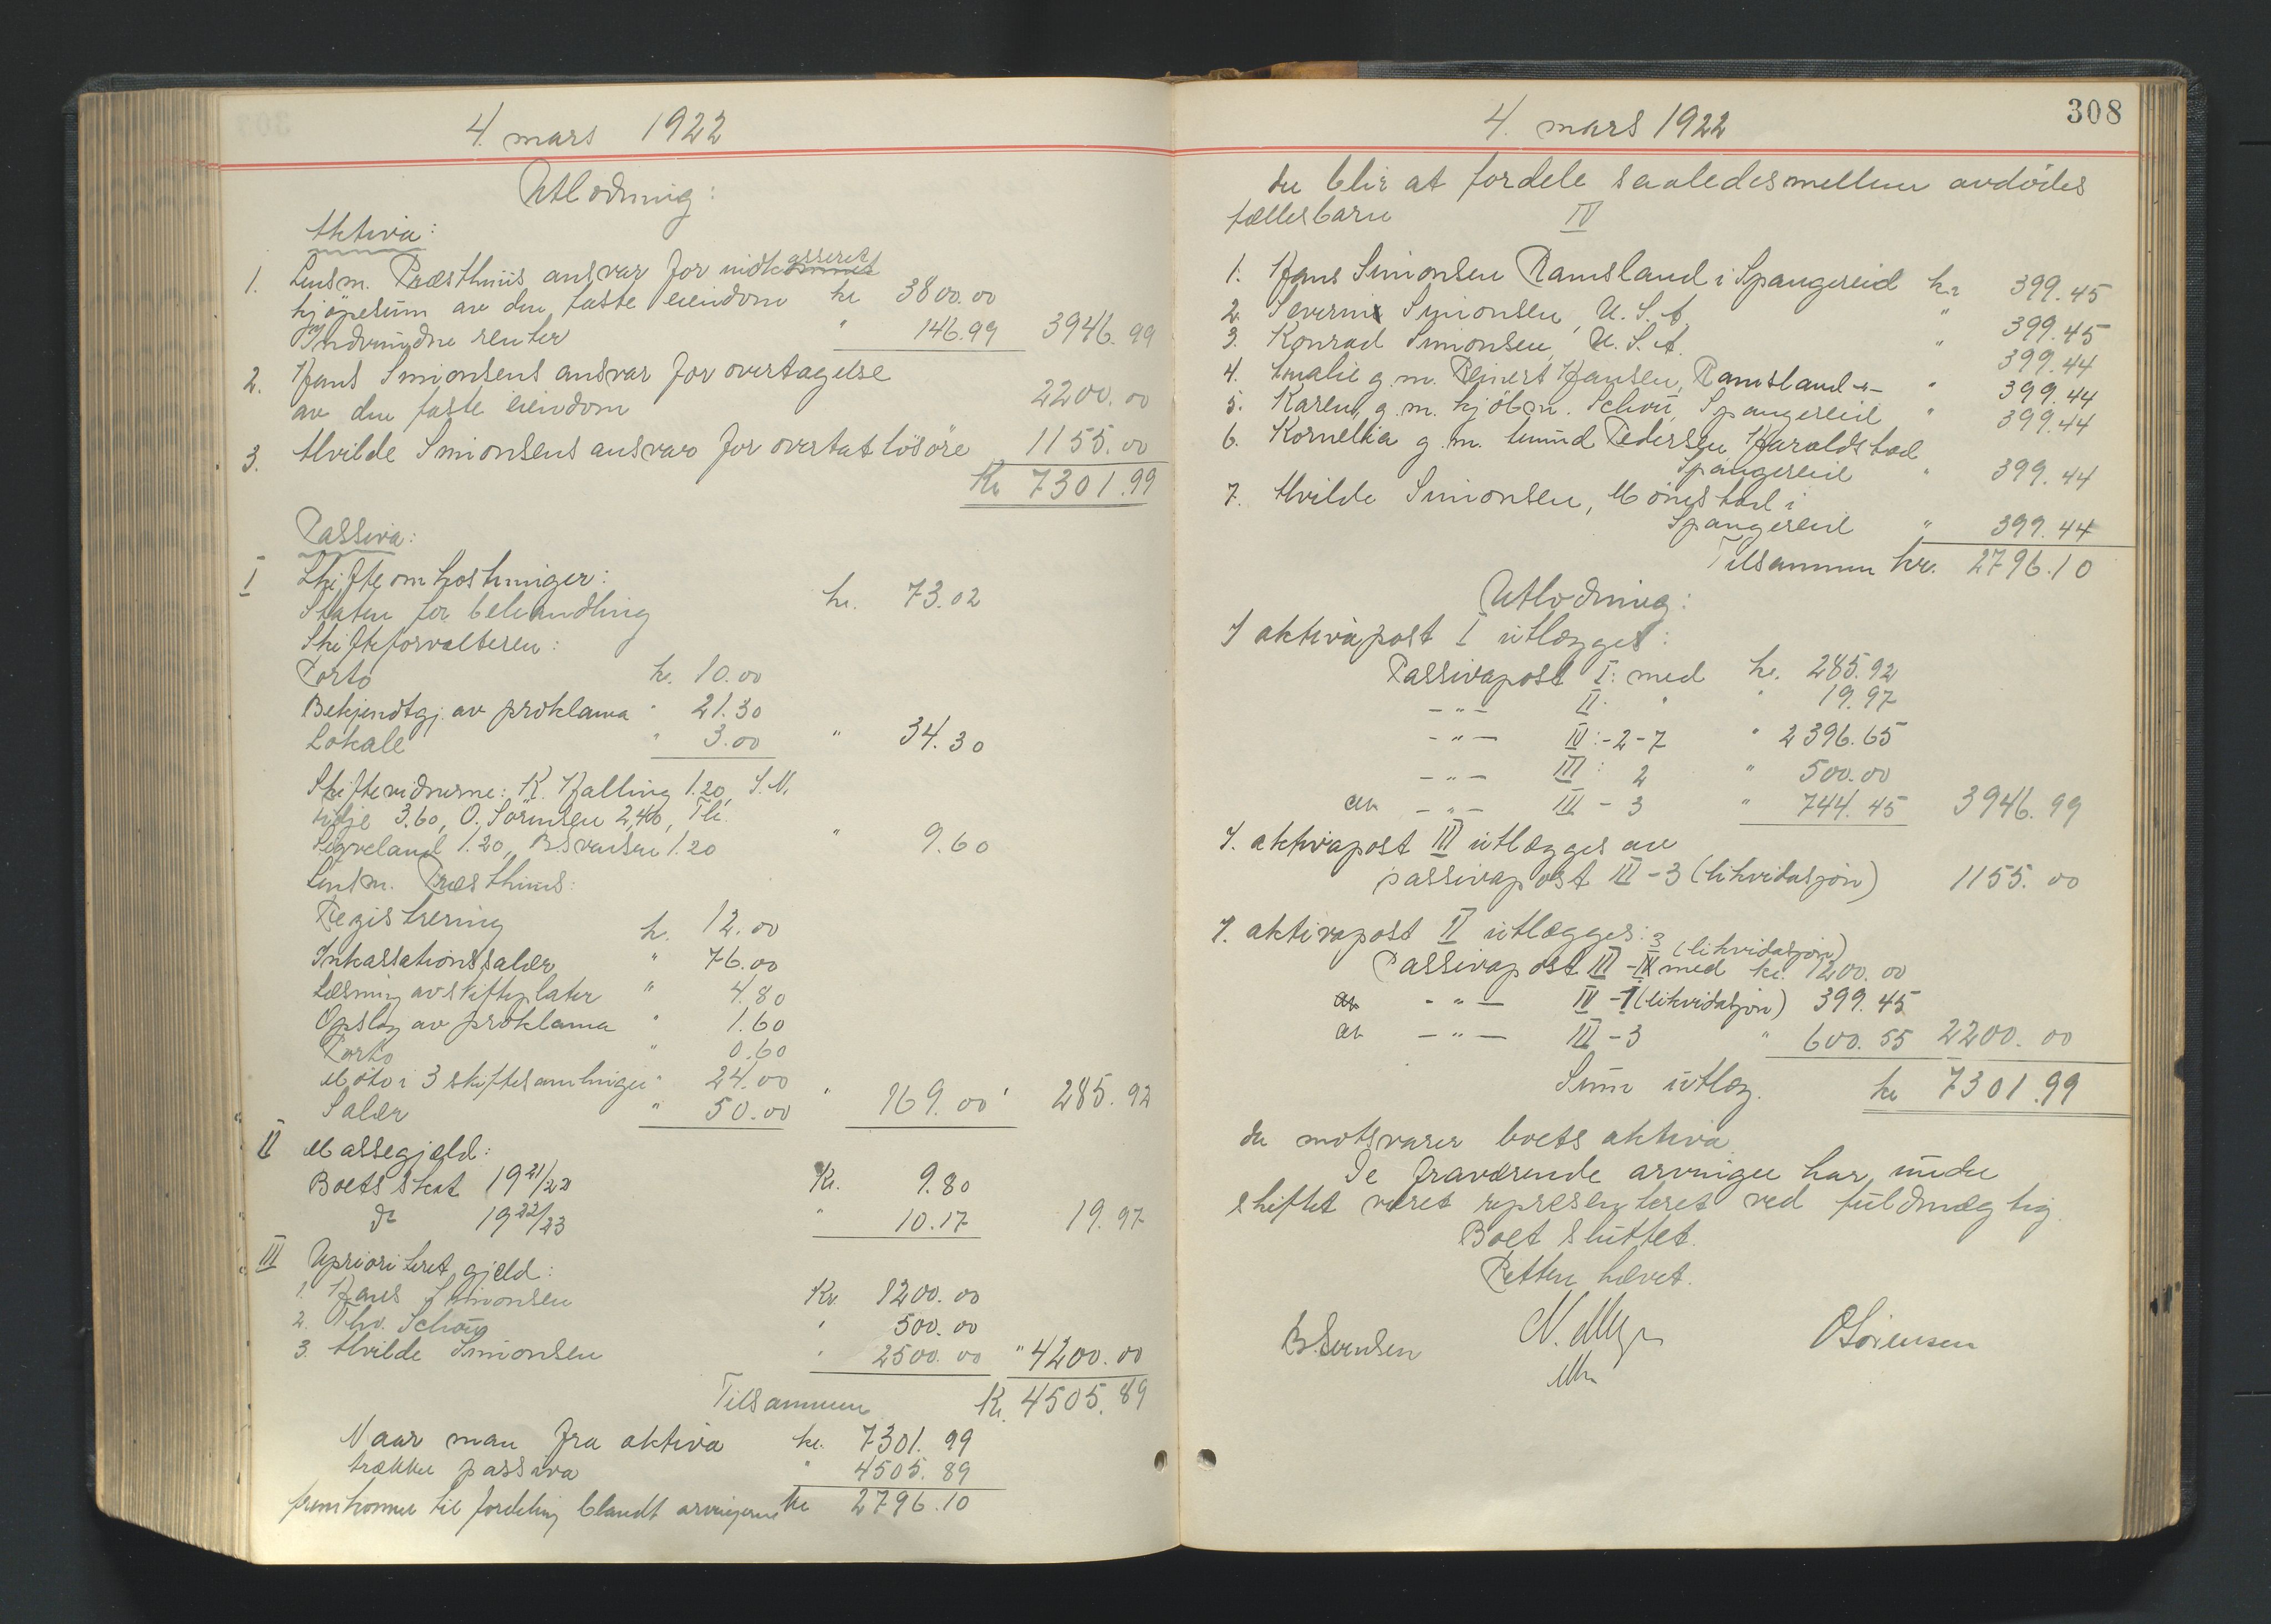 4. mars 1922
Utlodning:
Aktiva:
1. Lensm. Præsthuus ansvar for indkasseret
kjøpesum av den faste eiendom kr 3800.00
Indvundne renter " 146.99 3946.99
2. Hans Simonsens ansvar for overtagelse
av den faste eiendom 2200.00
3. Alvilde Simonsens ansvar for overtat løsøre 1155.00
Kr 7301.99
Passiva:
I Skifteomkostninger:
Staten for behandling kr. 73.02
Skifteforvalteren:
Porto kr. 10.00
Bekjendtgj. av proklama " 21.30
Lokale " 3.00 " 34.30
Skiftevidnerne: K. Halling 1.20, S. N.
3.60, O. Sørensen 2,40, Th.
Sigveland 1.20, B. Svensen 1.20 " 9.60
Lensm. Præsthuus:
Registrering kr. 12.00
Inkassationssalær " 76.00
Læsning av skifteplater " 4.80
Opslag av proklama " 1.60
Porto " 0.60
Møte i 3 skiftesamlinger " 24.00
Salær " 50.00 " 169.00 285.92
II Massegjæld:
Boets skat 1921/22 Kr. 9.80
do 1922/23 " 10.17 19.97
III Uprioritert gjæld:
1. Hans Simonsen Kr. 1200.00
2. Thv. Schøu " 500.00
3. Alvilde Simonsen " 2500.00 " 4200.00
Tilsammen Kr. 4505.89
Naar man fra aktiva kr. 7301.99
trækker passiva " 4505.89
fremkommer til fordeling blandt arvingerne kr 2796.10
308
4. mars 1922
der blir at fordele saaledes mellem avdødes
fællesbarn IV
1. Hans Simonsen Ramsland i Spangereid kr 399.45
2. Severin Simonsen, U.S.A. " 399.45
3. Konrad Simonsen, U.S.A. " 399.44
4. Amalie g.m. Reinert Hansen, Ramsland -"- " 399.44
5. Karen, g.m. kjøbm. Schøu, Spangereid " 399.44
6. Kornelia g.m. Amund Pedersen Haraldstad
Spangereid " 399.44
7. Alvilde Simonsen, Mønestad i
Spangereid " 399.44
Tilsammen kr. 2796.10
Utlodning:
I aktivapost I utlægges:
Passivapost I: med kr. 285.92
-"- II: " " 19.97
-"- IV:-2-7 " 2396.65
-"- III: 2 " 500.00
av -"- III-3 " 744.45 3946.99
I aktivapost III utlægges av
passivapost III-3 (likvidasjon) 1155.00
I aktivapost II utlægges:
Passivapost III - med kr. 1200.00 (likvidasjon)
av -"- IV-1 (likvidasjon) 399.45
av -"- III-3 " 600.55 2200.00
Sum utlæg. kr 7301.99
der motsvarer boets aktiva.
De fraværende arvinger har under
skiftet været representeret ved fuldmægtig.
Boet sluttet.
Retten hævet.
B. Svensen O Sørensen